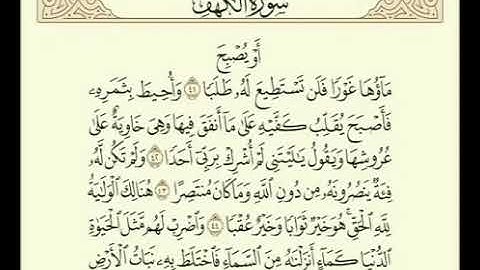 سورة الكهف
أَوْ يُصْبِحَ
مَآؤُهَا غَوْرًا فَلَن تَسْتَطِيعَ لَهُۥ طَلَبًا ٤١ وَأُحِيطَ بِثَمَرِهِۦ
فَأَصْبَحَ يُقَلِّبُ كَفَّيْهِ عَلَىٰ مَآ أَنفَقَ فِيهَا وَهِىَ خَاوِيَةٌ عَلَىٰ
عُرُوشِهَا وَيَقُولُ يَٰلَيْتَنِى لَمْ أُشْرِكْ بِرَبِّىٓ أَحَدًا ٤٢ وَلَمْ تَكُن لَّهُۥ
فِئَةٌ يَنصُرُونَهُۥ مِن دُونِ ٱللَّهِ وَمَا كَانَ مُنتَصِرًا ٤٣ هُنَالِكَ ٱلْوَلَٰيَةُ
لِلَّهِ ٱلْحَقِّ ۚ هُوَ خَيْرٌ ثَوَابًا وَخَيْرٌ عُقْبًا ٤٤ وَٱضْرِبْ لَهُم مَّثَلَ ٱلْحَيَوٰةِ
ٱلدُّنْيَا كَمَآءٍ أَنزَلْنَٰهُ مِنَ ٱلسَّمَآءِ فَٱخْتَلَطَ بِهِۦ نَبَاتُ ٱلْأَرْضِ